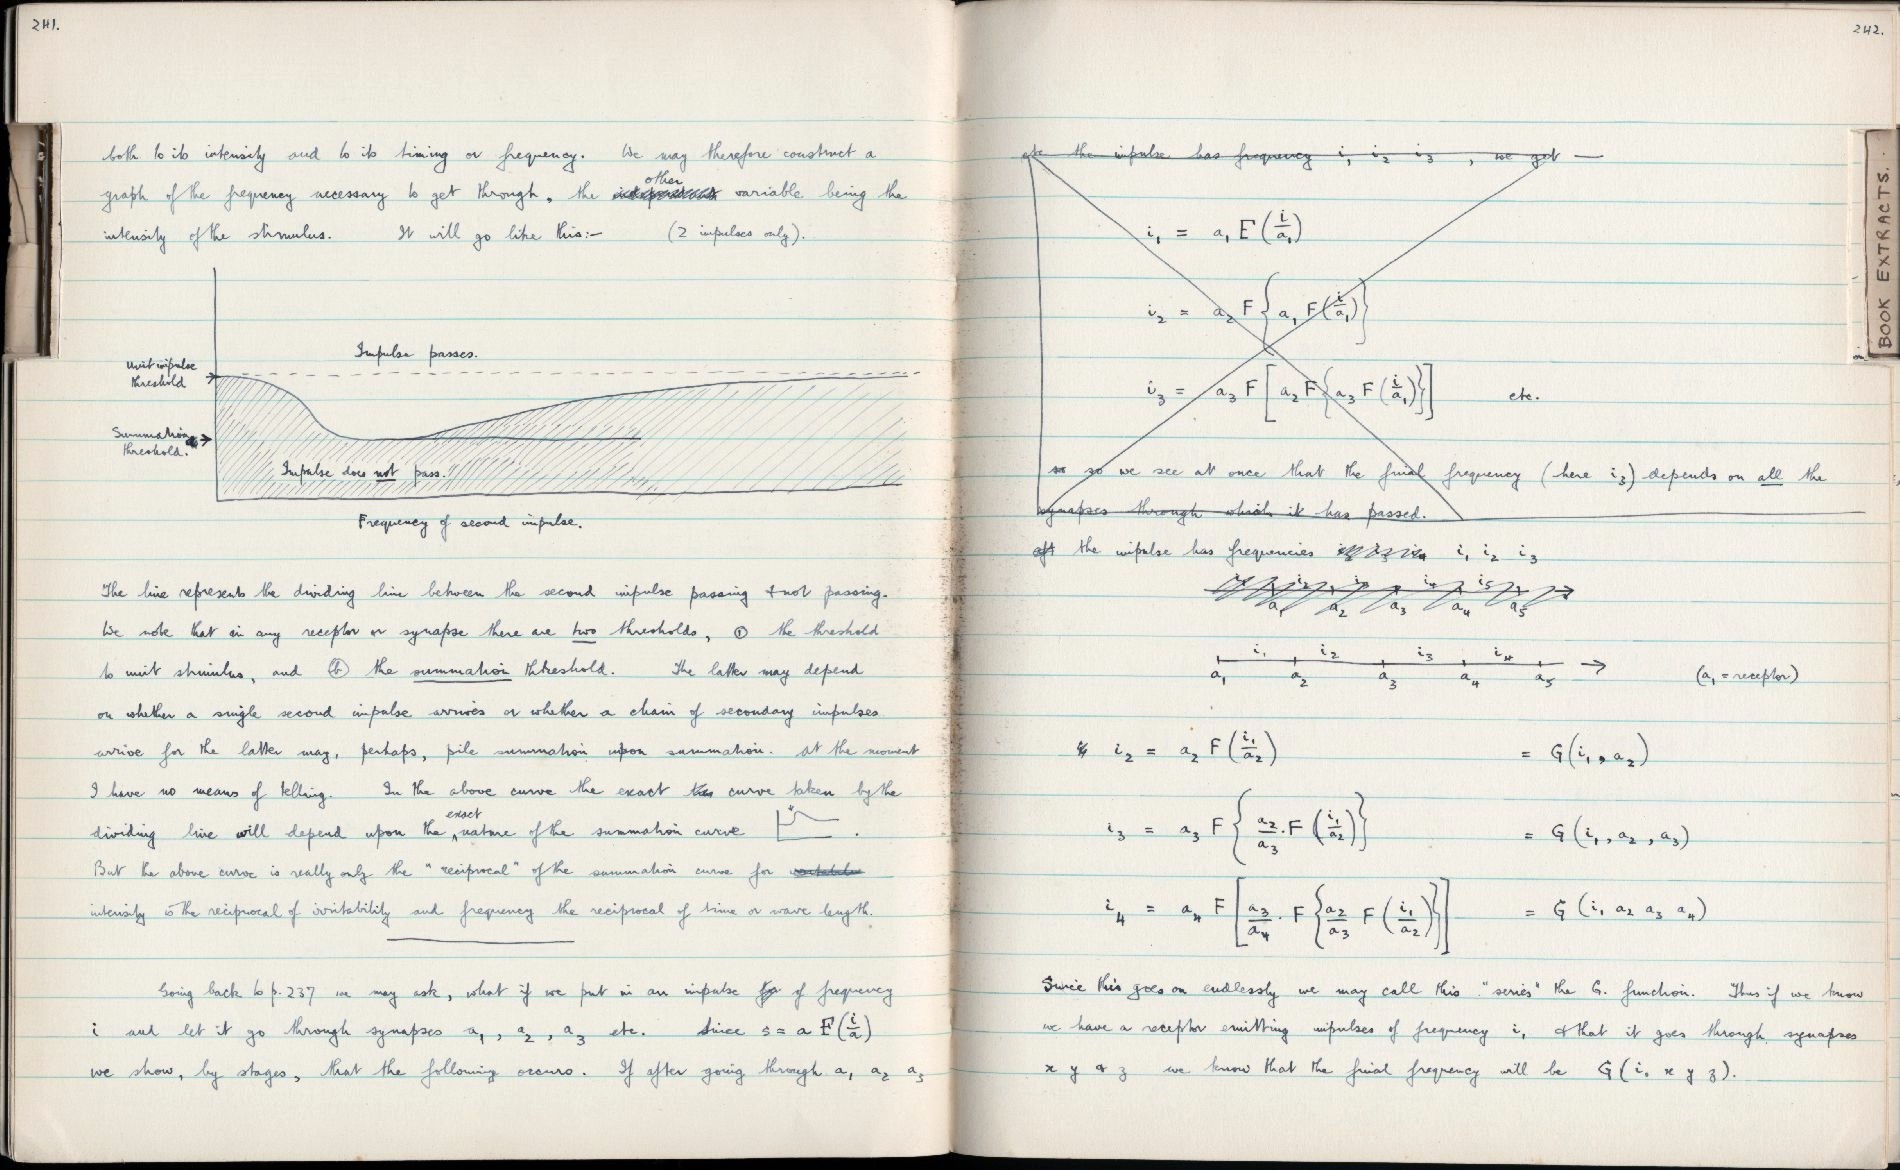 241.
both to its intensity and to its timing or frequency. We may therefore construct a
graph of the frequency necessary to get through, the other variable being the
intensity of the stimulus. It will go like this:- (2 impulses only).
Impulse passes.
Unit impulse
threshold
Summation
threshold.
Impulse does not pass.
Frequency of second impulse.
The line represents the dividing line between the second impulse passing & not passing.
We note that in any receptor or synapse there are two thresholds, ① the threshold
to unit stimulus, and (b) the summation threshold. The latter may depend
on whether a single second impulse arrives or whether a chain of secondary impulses
arrive for the latter may, perhaps, pile summation upon summation. At the moment
I have no means of telling. In the above curve the exact curve taken by the
dividing line will depend upon the exact nature of the summation curve .
But the above curve is really only the "reciprocal" of the summation curve for
intensity is the reciprocal of irritability and frequency the reciprocal of time or wave length.
Going back to p. 237 we may ask, what if we put in an impulse of frequency
i and let it go through synapses a₁, a₂, a₃ etc. Since s = a F(i/a)
we show, by stages, that the following occurs. If after going through a₁ a₂ a₃
242.
BOOK EXTRACTS.
etc the impulse has frequency i₁ i₂ i₃ , we get —
i₁ = a₁ F(i/a₁)
i₂ = a₂ F{a₁ F(i/a₁)}
i₃ = a₃ F[a₂ F{a₃ F(i/a₁)}] etc.
so we see at once that the final frequency (here i₃) depends on all the
synapses through which it has passed.
the impulse has frequencies i₁ i₂ i₃
i₁ i₂ i₃ i₄ i₅
a₁ a₂ a₃ a₄ a₅
i₁ i₂ i₃ i₄
a₁ a₂ a₃ a₄ a₅ (a₁ = receptor)
i₂ = a₂ F(i₁/a₂) = G(i₁, a₂)
i₃ = a₃ F{a₂/a₃ . F(i₁/a₂)} = G(i₁, a₂, a₃)
i₄ = a₄ F[a₃/a₄ . F{a₂/a₃ F(i₁/a₂)}] = G(i₁ a₂ a₃ a₄)
Since this goes on endlessly we may call this "series" the G. function. Thus if we know
we have a receptor emitting impulses of frequency i, & that it goes through synapses
x y & z we know that the final frequency will be G(i₁ x y z).